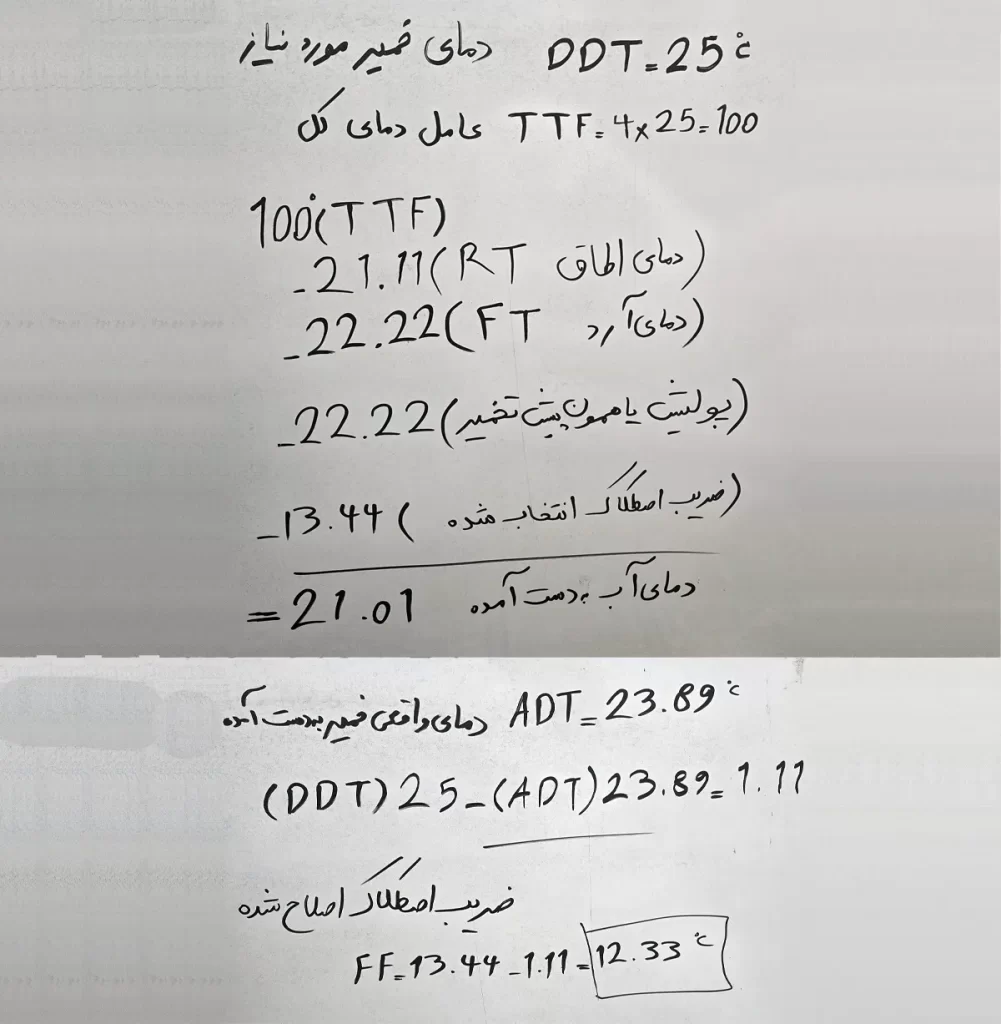 دمای خمیر مورد نیاز DDT=25°c
عامل دمای کل TTF=4×25=100
100°(TTF)
-21.11(RT دمای اطاق)
-22.22(FT دمای آرد)
-22.22(پولیش یا همون پیش تخمیر)
-13.44(ضریب اصطکاک انتخاب شده)
=21.01 دمای آب بدست آمده
دمای واقعی خمیر بدست آمده ADT=23.89°c
(DDT)25-(ADT)23.89=1.11
ضریب اصطکاک اصلاح شده
FF=13.44-1.11=12.33°c